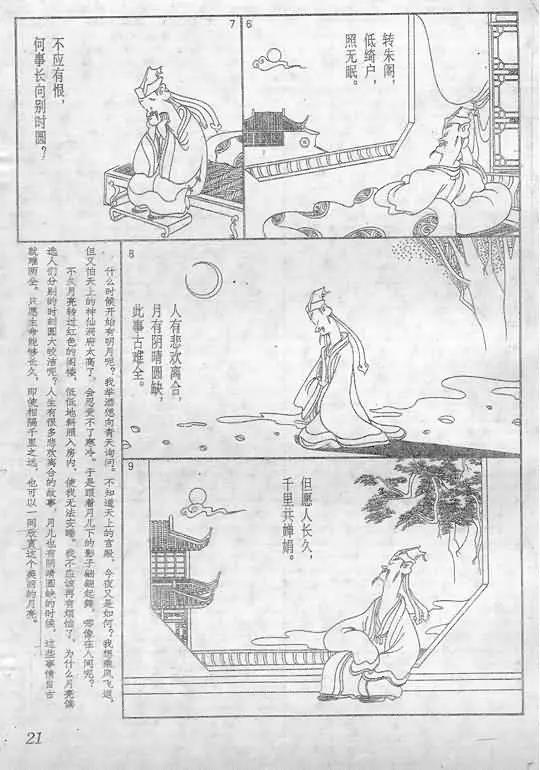 6
转朱阁，
低绮户，
照无眠。
7
不应有恨，
何事长向别时圆？
8
人有悲欢离合，
月有阴晴圆缺，
此事古难全。
9
但愿人长久，
千里共婵娟。
什么时候开始有明月呢？我举酒想向青天询问。不知道天上的宫殿，今夜又是如何？我想乘风飞返，
但又怕天上的神仙洞府太高了，会忍受不了寒冷。于是跟着月儿下的影子翩翩起舞，哪像在人间呢？
不久月亮转过红色的阁楼，低低地斜照入房内，使我无法安睡。我不应该再有烦恼了，为什么月亮偏
选人们分别的时刻圆大皎洁呢？人生有很多悲欢离合的故事，月儿也有阴晴圆缺的时候，这些事情自古
就难两全。只愿生命能够长久，即使相隔千里之远，也可以一同欣赏这个美丽的月亮。
21